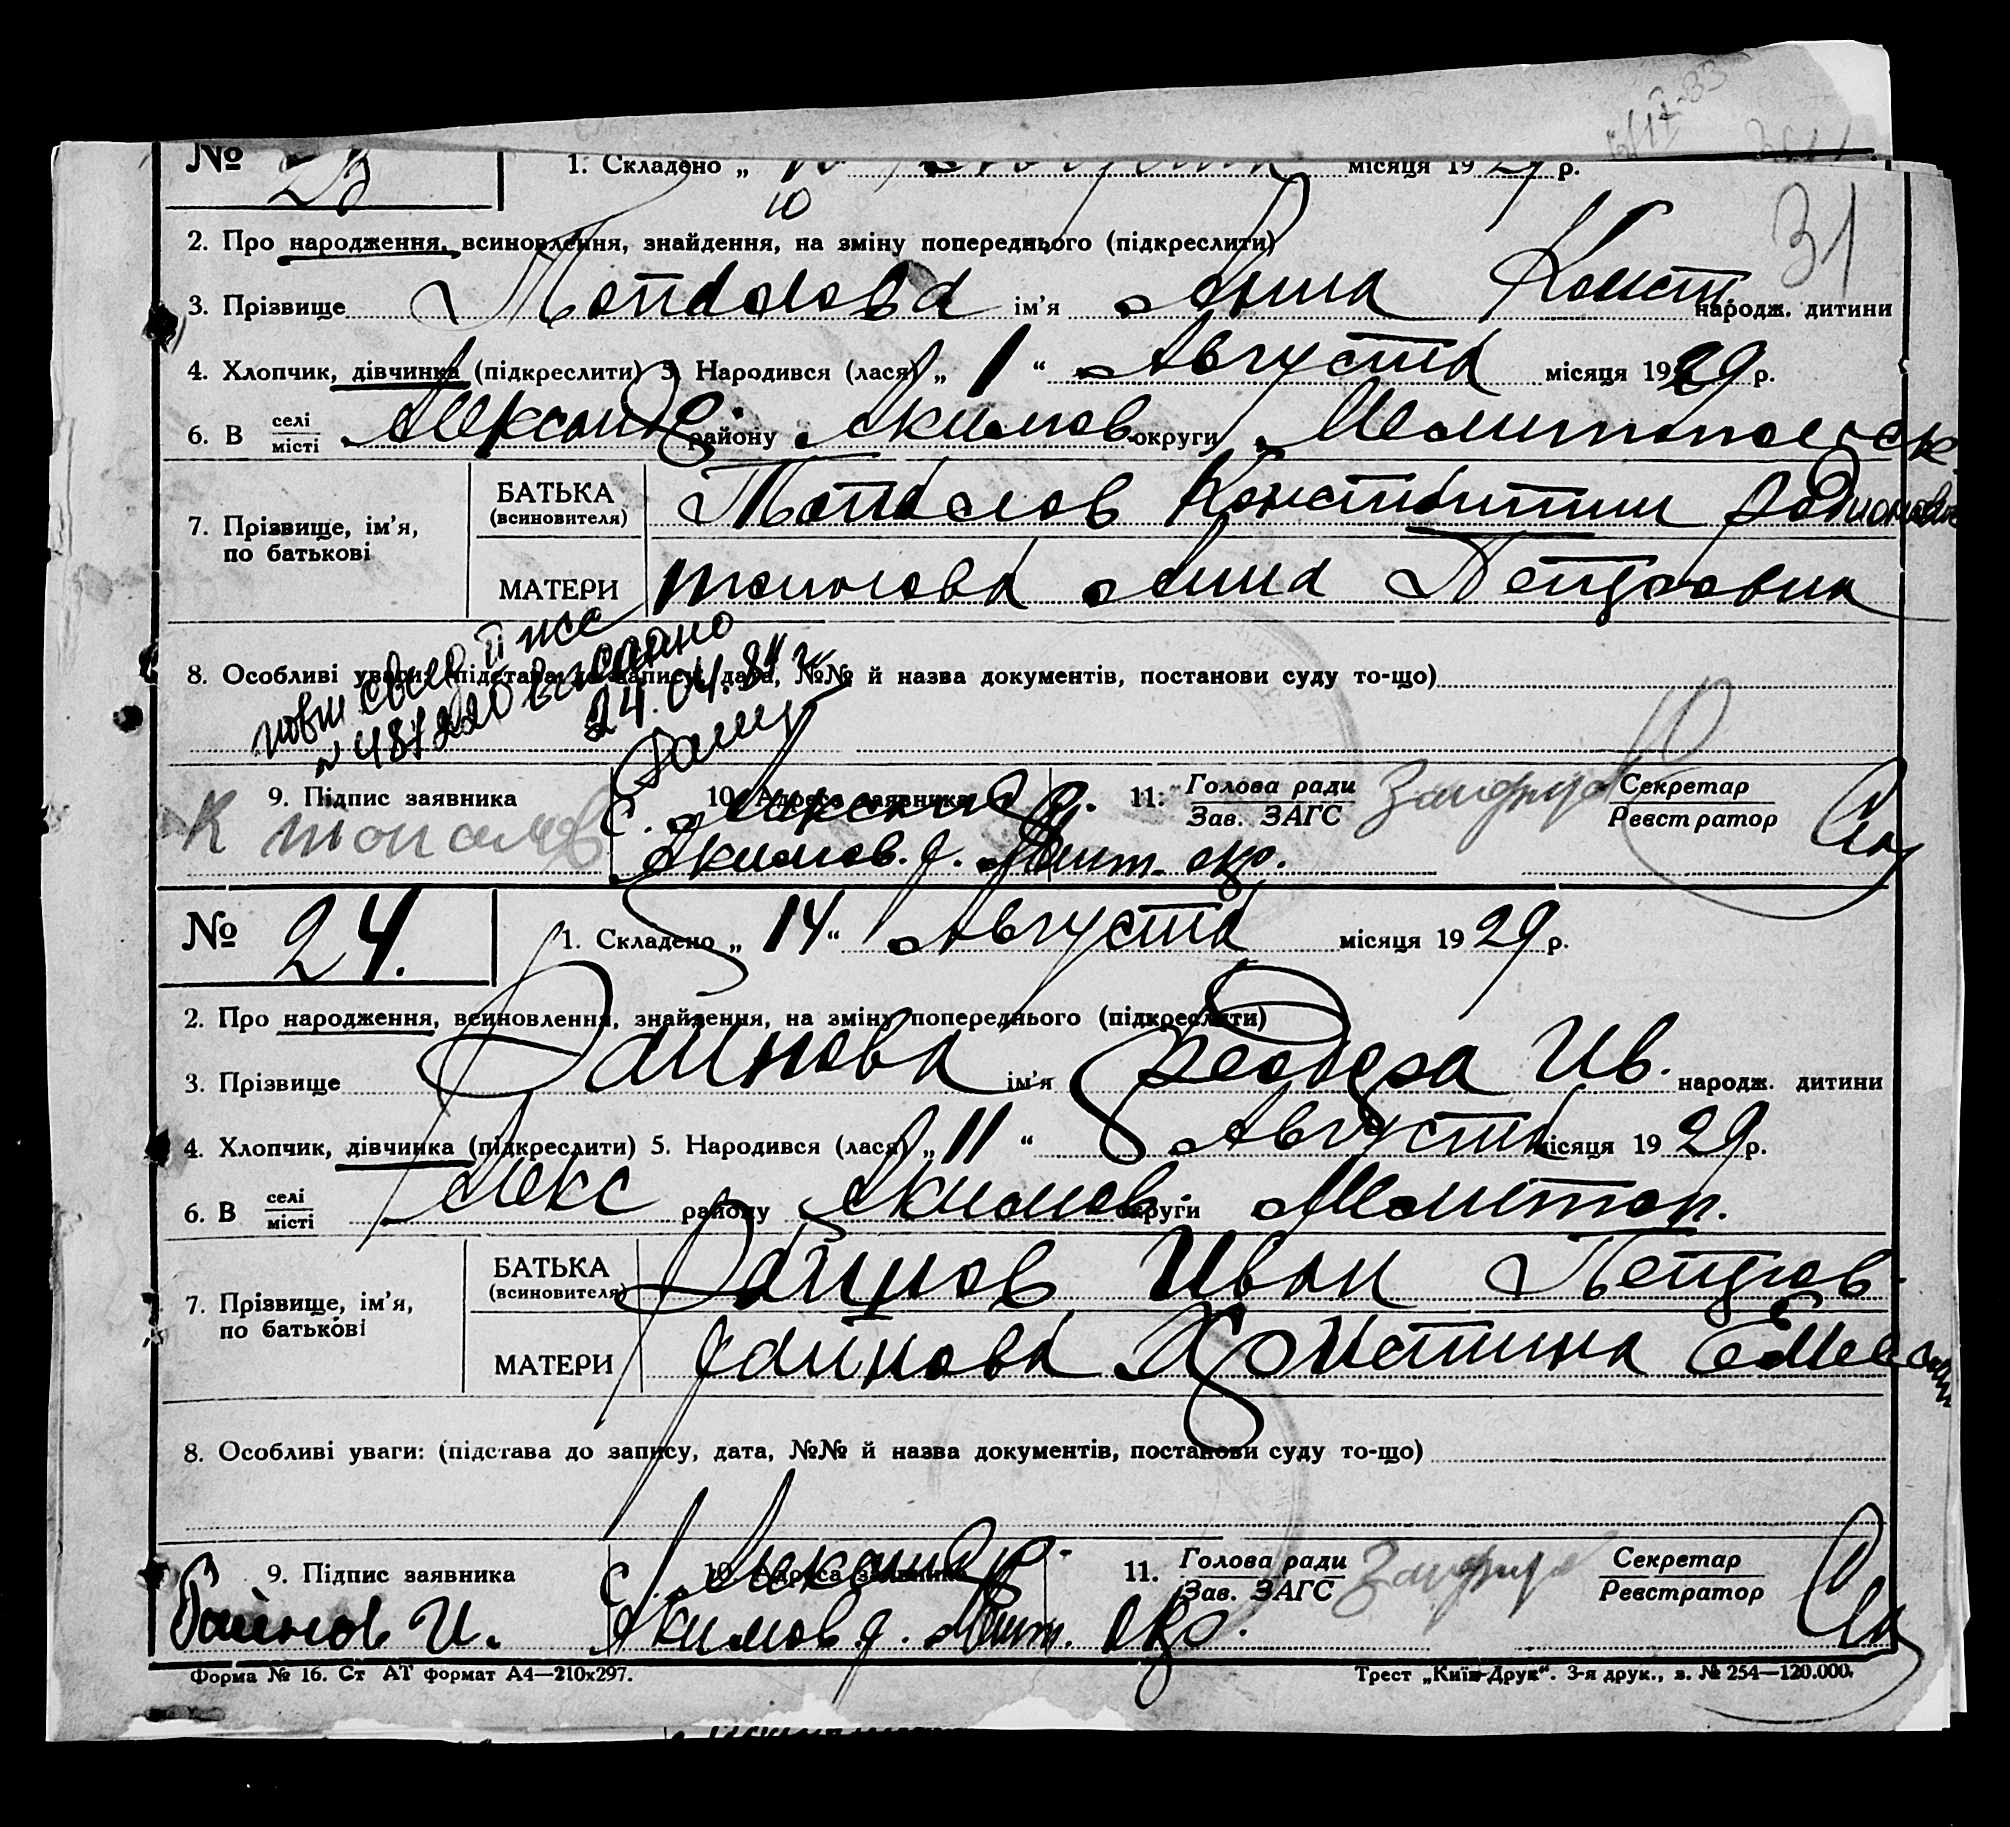 31
№ 23 1. Складено „ 10 Августа місяця 1929 р.
10
2. Про народження, всиновлення, знайдення, на зміну попереднього (підкреслити)
3. Прізвище Топалова ім'я Анна Конст. народж. дитини
4. Хлопчик, дівчинка (підкреслити) 5. Народився (лася) „ 1 “ Августа місяця 1929 р.
6. В селі/місті Александр. району Акимов. округи Мелитопольск.
7. Прізвище, ім'я, по батькові БАТЬКА (всиновителя) Топалов Константин Родионович
МАТЕРИ Топалова Анна Петровна
8. Особливі уваги: (підстава до запису, дата, №№ й назва документів, постанови суду то-що)
24.04.84 г.
9. Підпис заявника 10. Адреса заявника 11. Голова ради/Зав. ЗАГС Секретар/Реєстратор
К Топалов с. Александр.
Акимов. р. Мелит. окр.
№ 24. 1. Складено „ 14 “ Августа місяця 1929 р.
2. Про народження, всиновлення, знайдення, на зміну попереднього (підкреслити)
3. Прізвище Райнова ім'я Феодора Ив. народж. дитини
4. Хлопчик, дівчинка (підкреслити) 5. Народився (лася) „ 11 “ Августа місяця 1929 р.
6. В селі/місті Алекс району Акимов. округи Мелитоп.
7. Прізвище, ім'я, по батькові БАТЬКА (всиновителя) Райнов Иван Петров.
МАТЕРИ Райнова Христина
8. Особливі уваги: (підстава до запису, дата, №№ й назва документів, постанови суду то-що)
9. Підпис заявника 10. Адреса заявника 11. Голова ради/Зав. ЗАГС Секретар/Реєстратор
Райнов И. с. Александр.
Акимов. р. Мелит. окр.
Форма № 16. Ст АТ формат А4—210х297. Трест „Київ-Друк“. 3-я друк., з. № 254—120.000.